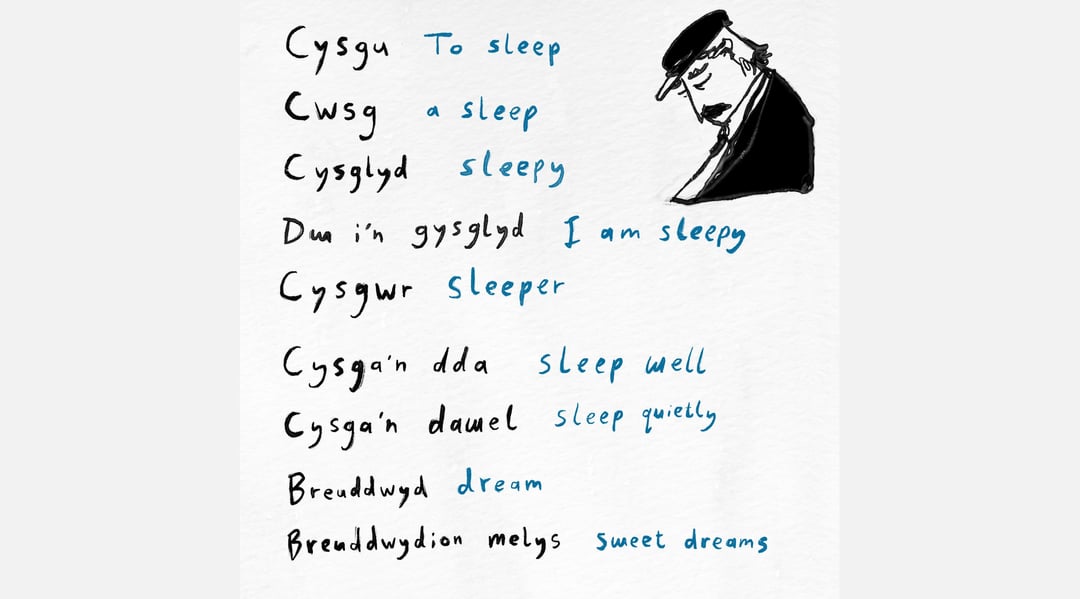 Cysgu To sleep
Cwsg a sleep
Cysglyd sleepy
Dwa i'n gysglyd I am sleepy
Cysgwr sleeper
Cysga'n dda sleep well
Cysga'n dawel sleep quietly
Breuddwyd dream
Breuddwydion melys sweet dreams